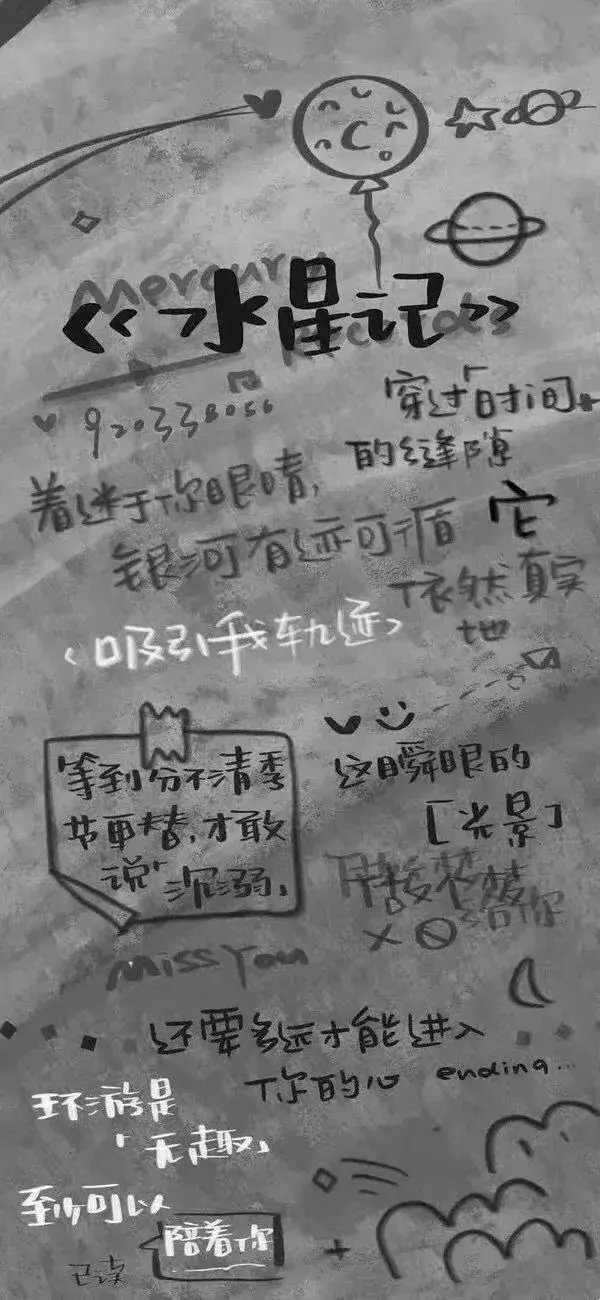 Mercury Records
《水星记》
920338056
穿过「时间」
的缝隙
着迷于你眼睛,
银河有迹可循
它
依然真实
地
〈吸引我轨迹〉
等到分不清季
节更替,才敢
说「沉溺」
这瞬眼的
[光景]
给你
miss you
还要多远才能进入
你的心 ending...
环游是
「无趣」
至少可以
陪着你
已读